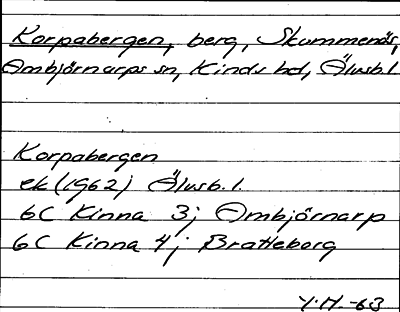 Korpabergen, berg, Skummenäs,
Ambjörnarps sn, Kinds hd, Älvsb.l
Korpabergen
ek (1962) Älvsb. l.
6C Kinna 3; Ambjörnarp
6C Kinna 4; Bratteborg
Y.H.-63